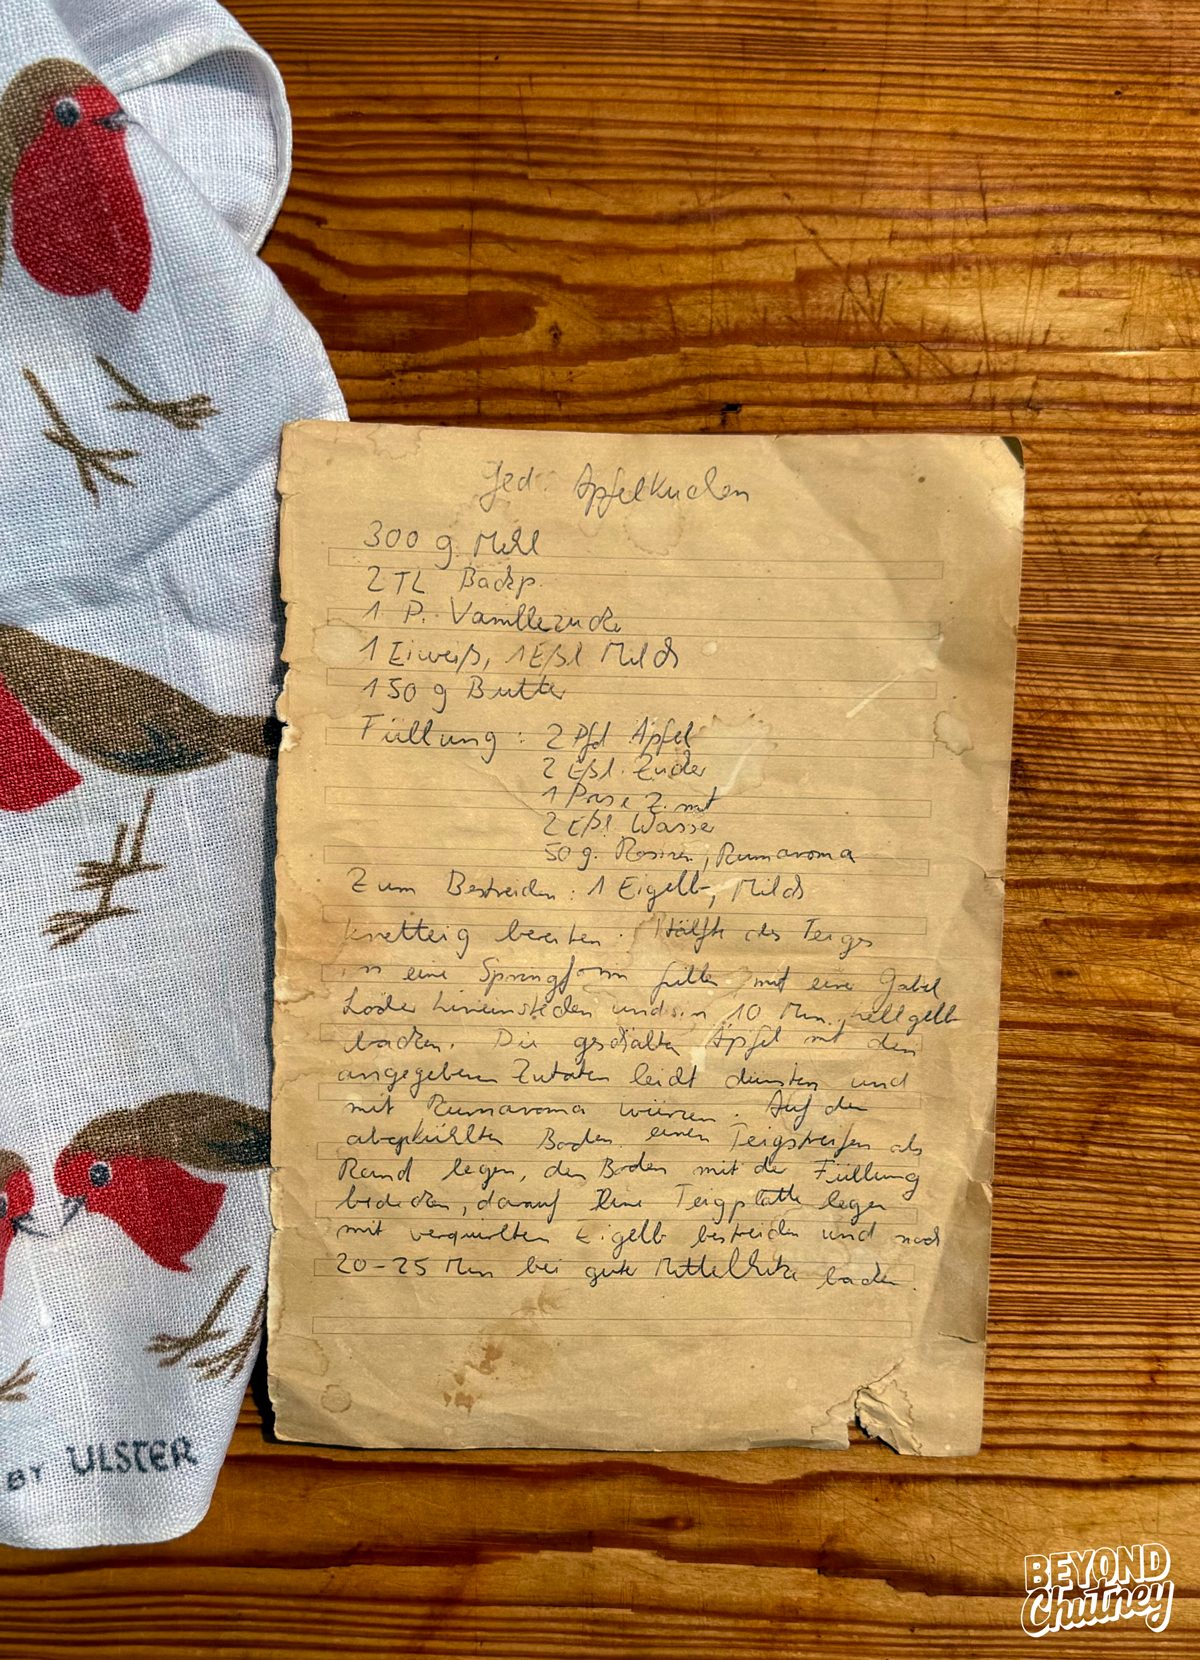 Ged. Apfelkuchen
300 g Mehl
2 TL Backp.
1 P. Vanillezucke
1 Eiweiß, 1 Eßl Milch
150 g Butter
Füllung: 2 Pfd Äpfel
2 Eßl. Zucker
1 Prise Zimt
2 Eßl Wasser
50 g. Rosinen, Rumaroma
Zum Bestreichen: 1 Eigelb, Milch
Knetteig bereiten. Hälfte des Teiges
in eine Springform füllen mit einer Gabel
Löcher hineinstechen und in 10 Min. hellgelb
backen. Die geschälten Äpfel mit den
angegebenen Zutaten leicht dünsten und
mit Rumaroma würzen. Auf den
abgekühlten Boden einen Teigstreifen als
Rand legen, den Boden mit der Füllung
bedecken, darauf eine Teigplatte legen
mit verquirlten Eigelb bestreichen und noch
20-25 Min bei guter Mittelhitze backen.
BY ULSTER
BEYOND
Chutney